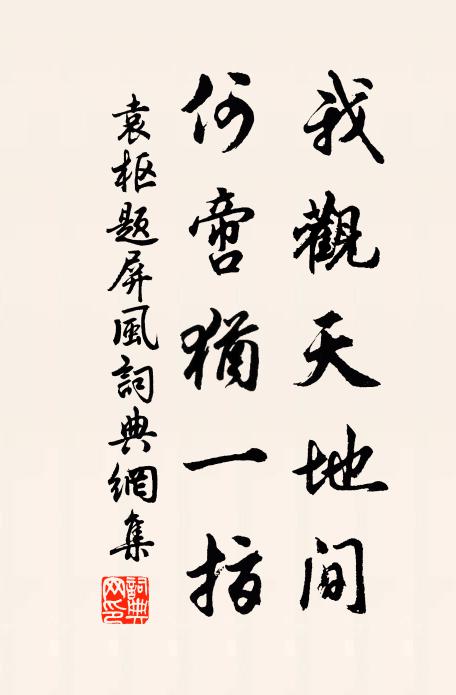 我觀天地間
何啻猶一指
袁枢题屏風詞典網集
詞典网印